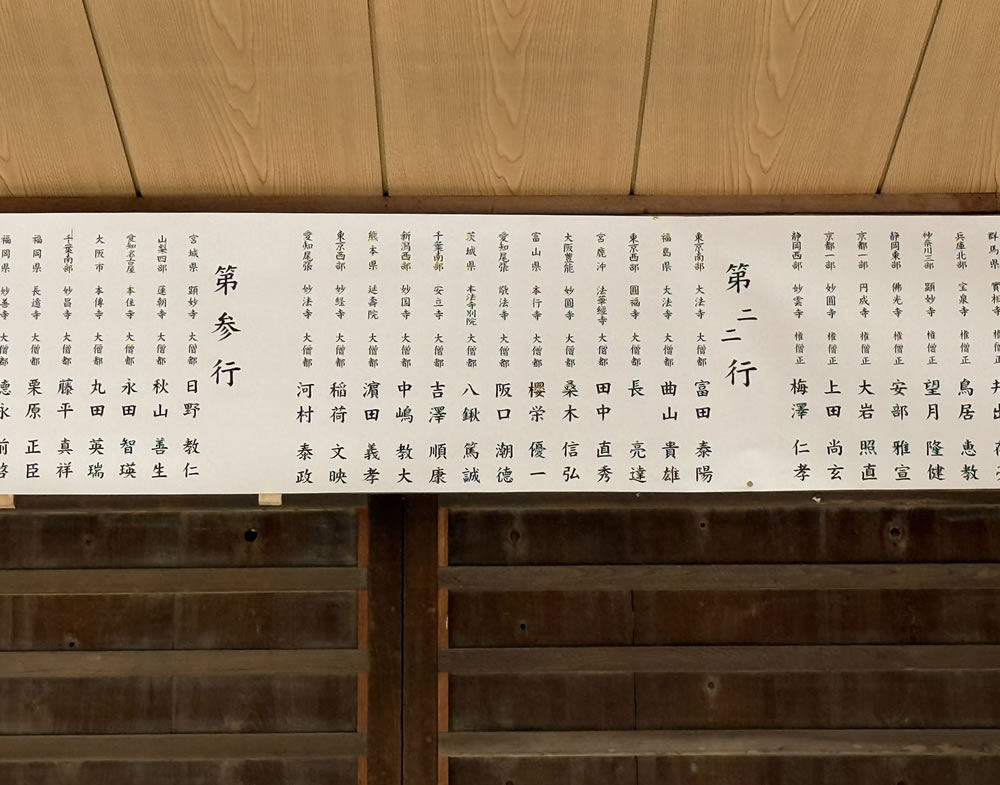 群馬県 實相寺
兵庫北部 宝泉寺 権僧正 鳥居 恵教
神奈川三部 顕妙寺 権僧正 望月 隆健
静岡東部 佛光寺 権僧正 安部 雅宣
京都一部 円成寺 権僧正 大岩 照直
京都一部 妙圓寺 権僧正 上田 尚玄
静岡西部 妙雲寺 権僧正 梅澤 仁孝
第二二行
東京南部 大法寺 大僧都 富田 泰陽
福島県 大法寺 大僧都 曲山 貴雄
東京西部 圓福寺 大僧都 長 亮達
宮鹿沖 法華經寺 大僧都 田中 直秀
大阪豊能 妙圓寺 大僧都 桑木 信弘
富山県 本行寺 大僧都 櫻栄 優一
愛知尾張 敬法寺 大僧都 阪口 潮徳
茨城県 本法寺別院 大僧都 八鍬 篤誠
千葉南部 安立寺 大僧都 吉澤 順康
新潟西部 妙国寺 大僧都 中嶋 教大
熊本県 延壽院 大僧都 濵田 義孝
東京西部 妙経寺 大僧都 稲荷 文映
愛知尾張 妙法寺 大僧都 河村 泰政
第参行
宮城県 顕妙寺 大僧都 日野 教仁
山梨四部 蓮朝寺 大僧都 秋山 善生
愛知名古屋 本住寺 大僧都 永田 智瑛
大阪市 本傳寺 大僧都 丸田 英瑞
千葉南部 妙昌寺 大僧都 藤平 真祥
福岡県 長遠寺 大僧都 栗原 正臣
福岡県 妙善寺 大僧都 徳永